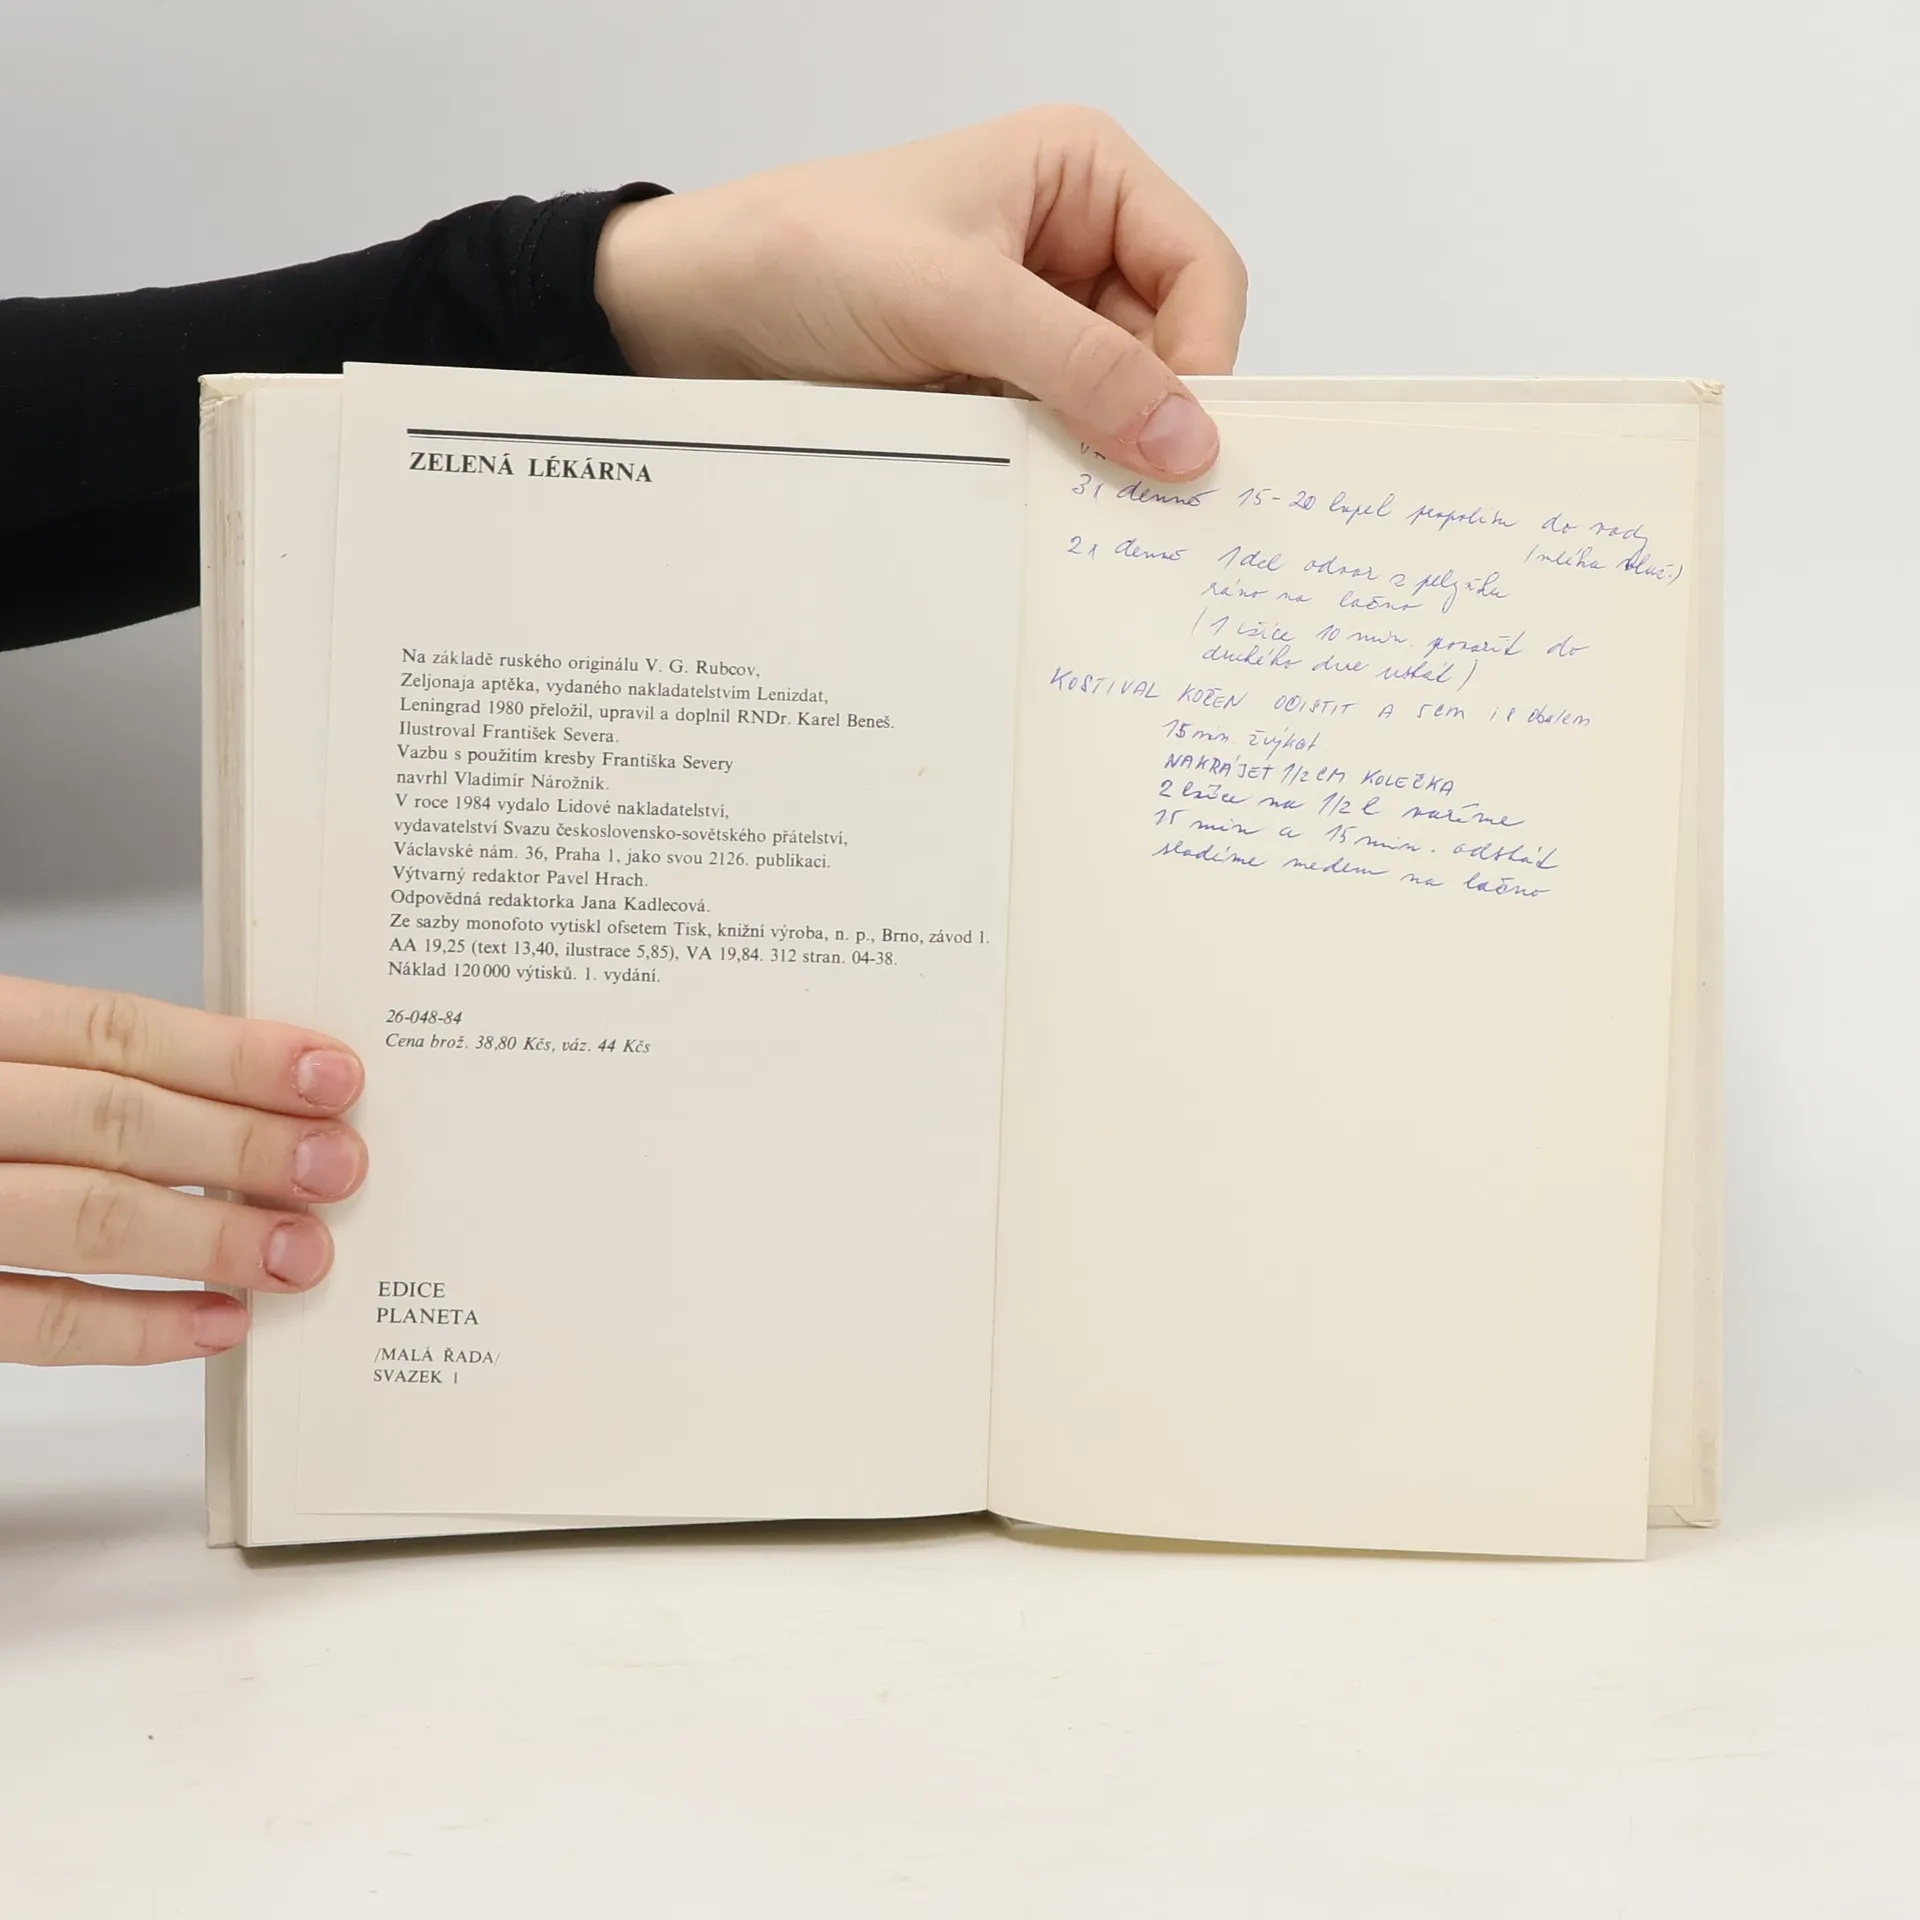 ZELENÁ LÉKÁRNA
Na základě ruského originálu V. G. Rubcov,
Zeljonaja aptěka, vydaného nakladatelstvím Lenizdat,
Leningrad 1980 přeložil, upravil a doplnil RNDr. Karel Beneš.
Ilustroval František Severa.
Vazbu s použitím kresby Františka Severy
navrhl Vladimír Nárožník.
V roce 1984 vydalo Lidové nakladatelství,
vydavatelství Svazu československo-sovětského přátelství,
Václavské nám. 36, Praha 1, jako svou 2126. publikaci.
Výtvarný redaktor Pavel Hrach.
Odpovědná redaktorka Jana Kadlecová.
Ze sazby monofoto vytiskl ofsetem Tisk, knižní výroba, n. p., Brno, závod 1.
AA 19,25 (text 13,40, ilustrace 5,85), VA 19,84. 312 stran. 04-38.
Náklad 120 000 výtisků. 1. vydání.
26-048-84
Cena brož. 38,80 Kčs, váz. 44 Kčs
EDICE
PLANETA
/MALÁ ŘADA/
SVAZEK 1
3x denně 15-20 kapek propolisu do vody
2x denně 1 del odvar z pelyňku
ráno na lačno
(1 lžíce 10 min. povařit do
druhého dne ustát)
KOSTIVAL KOŘEN OČISTIT A 5cm
15 min. žvýkat
NAKRÁJET 1/2 CM KOLEČKA
2 lžíce na 1/2 l vaříme
15 min a 15 min. odstát
sladíme medem na lačno